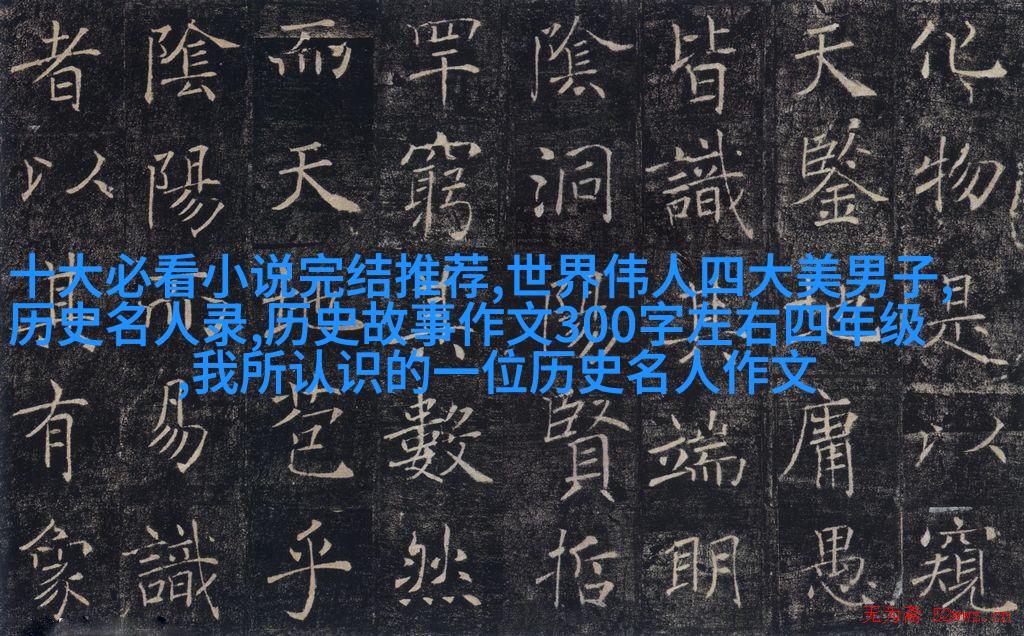 化物是以窺
天鑒地庸愚
皆識其端明
陰洞陽賢哲
罕窮其數然
而天地苞乎
陰陽而易識
者以其有象
十大必看小说完结推荐,世界伟人四大美男子,
历史名人录,历史故事作文300字左右四年级
,我所认识的一位历史名人作文
无为斋 52wwz.cn